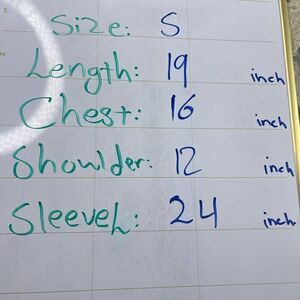 Size: S
Length: 19 inch
Chest: 16 inch
Showlder: 12 inch
Sleeveh: 24 inch